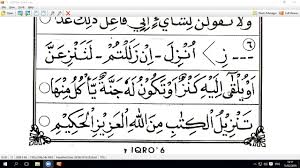 وَلَا تَقُولَنَّ لِشَايْءٍ إِنِّي فَاعِلٌ ذَٰلِكَ غَدًا
٦
ـــ ز > أُنْزِلَ - اِنْ زَلَلْتُمْ - لَنَنْزِعَنَّ
أَوْيُلْقٰى إِلَيْهِ كَنْزٌ أَوْتَكُونُ لَهُ جَنَّةٌ يَأْكُلُ مِنْهَا
تَنْزِيلُ الْكِتٰبِ مِنَ اللهِ الْعَزِيْزِ الْحَكِيْمِ
IQRO' 6